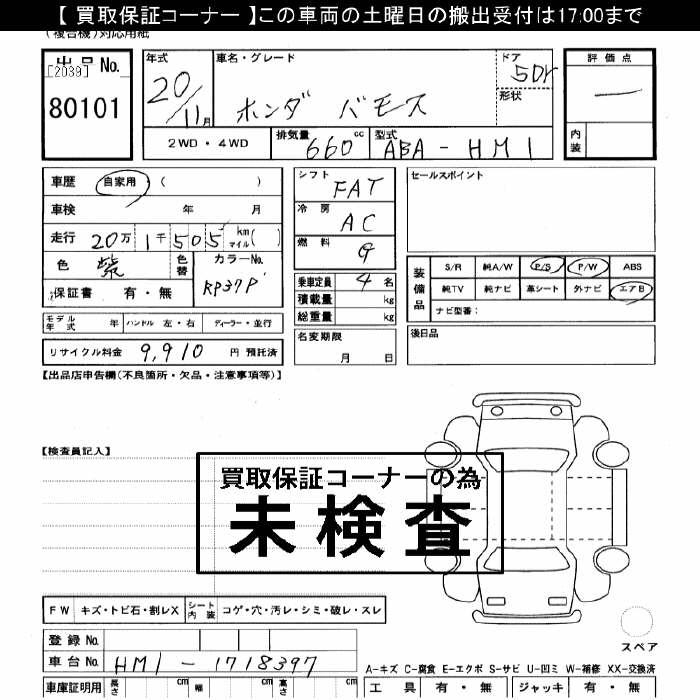 【 買取保証コーナー 】この車両の土曜日の搬出受付は17:00まで
(複合機)対応用紙
出品 No.
[2039]
80101
年式
20/11月
車名・グレード
ホンダ バモス
ドア
5Dr
形状
評価点
—
内装
2WD・4WD
排気量 660 cc
型式 ABA-HM1
車歴 自家用・( )
車検 年 月
走行 20万1千505 km マイル( )
色 紫 色替
カラーNo. RP37P
保証書 有・無
モデル年式 年 ハンドル 左・右 ディーラー・並行
リサイクル料金 9,910 円 預託済
シフト FAT
冷房 AC
燃料 G
乗車定員 4 名
積載量 kg
総重量 kg
名変期限
月 日
セールスポイント
装備品
S/R 純A/W P/S P/W ABS
純TV 純ナビ 革シート 外ナビ エアB
ナビ型番:
後日品
【出品店申告欄(不良箇所・欠品・注意事項等)】
【検査員記入】
買取保証コーナーの為
未検査
FW キズ・トビ石・割レX シート内装 コゲ・穴・汚レ・シミ・破レ・スレ
スペア
登録 No.
車台 No. HM1-1718397
A-キズ C-腐食 E-エクボ S-サビ U-凹ミ W-補修 XX-交換済
車庫証明用 長さ cm 幅 cm 高さ cm
工具 有・無 ジャッキ 有・無